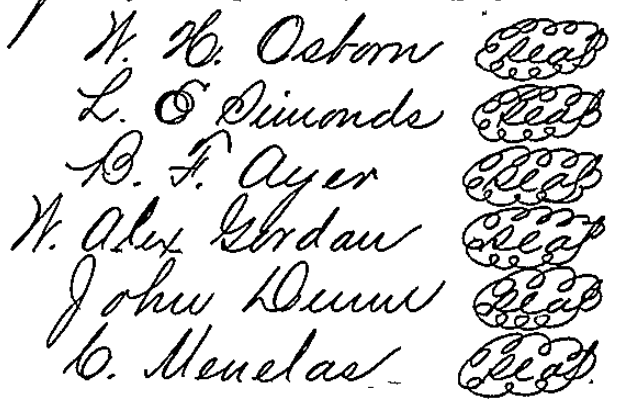 W. H. Osborn (Seal)
L. O Simonds (Seal)
B. F. Ayer (Seal)
W. Alex Gordan (Seal)
John Dunn (Seal)
C. Menelas (Seal)